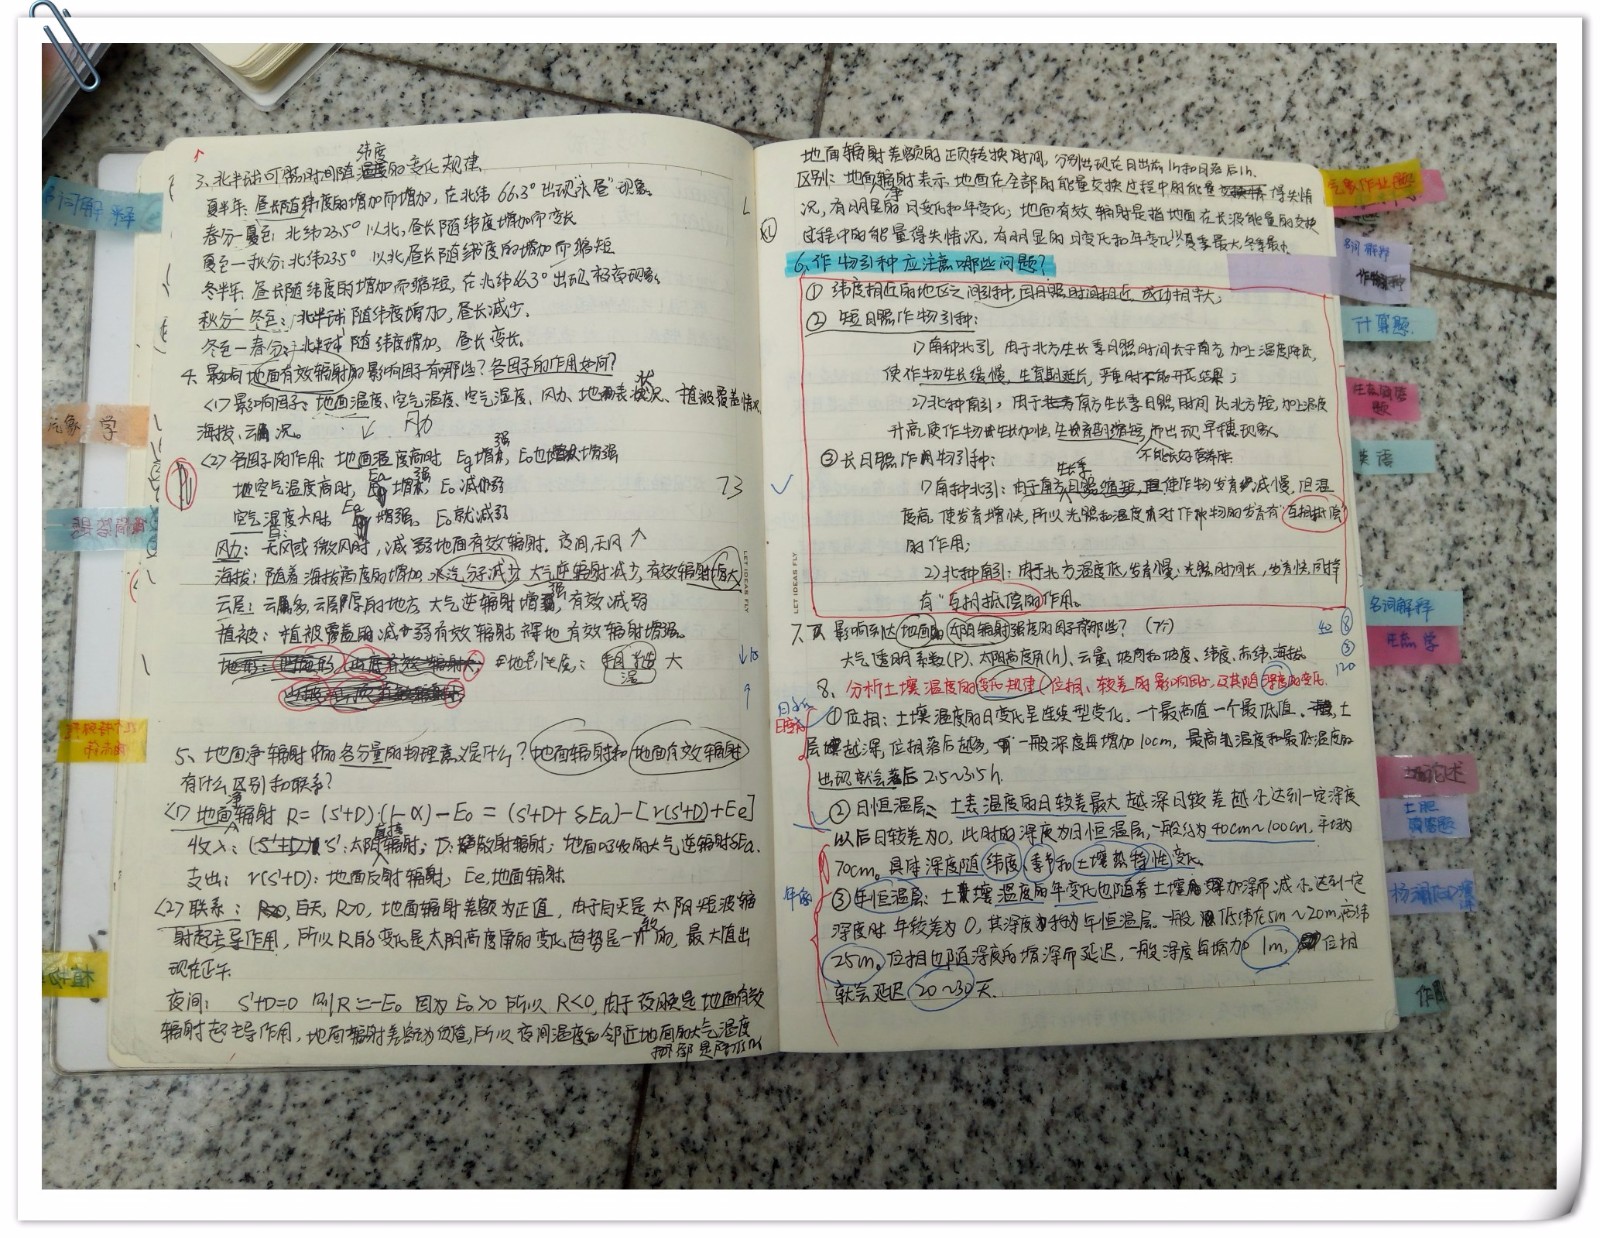 3、北半球可照时间随纬度的变化规律
夏半年：昼长随纬度的增加而增加，在北纬66.3°出现"永昼"现象。
春分—夏至：北纬23.5°以北，昼长随纬度增加而变长
夏至—秋分：北纬23.5°以北昼长随纬度的增加而缩短
冬半年：昼长随纬度的增加而缩短，在北纬66.3°出现极夜现象。
秋分—冬至：北半球随纬度增加，昼长减少。
冬至—春分：北半球随纬度增加，昼长变长。
4、影响地面有效辐射的影响因子有哪些？各因子的作用如何？
<1>影响因子：地面温度、空气温度、空气湿度、风力、地表状况、植被覆盖情况
海拔、云况。 风力
<2>各因子的作用：地面温度高时，Eg增强，E₀也增强
空气温度高时，Ea增强，E₀减弱
空气湿度大时，Ea增强，E₀就减弱
风力：无风或微风时，减弱地面有效辐射。夜间，无风
海拔：随着海拔高度的增加，水汽分子减少，大气逆辐射减少，有效辐射增大
云层：云层多，云层厚的地方，大气逆辐射增强，有效减弱
植被：植被覆盖的减弱有效辐射，裸地有效辐射增强。
大
73
5、地面净辐射的各分量的物理意义是什么？地面辐射和地面有效辐射
有什么区别和联系？
<1>地面净辐射 R=(S'+D)(1-α)-E₀=(S'+D+δEa)-[r(S'+D)+Ee]
收入：S'：太阳直接辐射；D：散射辐射；地面吸收的大气逆辐射δEa.
支出：r(S'+D)：地面反射辐射；Ee，地面辐射.
<2>联系：白天，R>0，地面辐射差额为正值，由于白天是太阳短波辐
射起主导作用，所以R的变化是太阳高度角的变化趋势是一致的，最大值出
现在正午.
夜间： S'+D=0 则R=-E₀ 因为E₀>0 所以R<0，由于夜间是地面有效
辐射起主导作用，地面辐射差额为负值，所以夜间温度和邻近地面的大气温度
都是降低的
地面辐射差额的正负转换时间，分别出现在日出后1h和日落后1h.
区别：地面净辐射表示地面在全部的能量交换过程中的能量得失情
况，有明显的日变化和年变化，地面有效辐射是指地面在长波能量的交换
过程中的能量得失情况，有明显的日变化和年变化，夏季最大冬季最小
6、作物引种应注意哪些问题？
① 纬度相近的地区之间引种，因日照时间相近，成功相率大，
② 短日照作物引种：
1)南种北引，由于北方生长季日照时间长于南方，加上温度降低，
使作物生长缓慢，生育期延长，严重时不能开花结果；
2)北种南引，由于南方生长季日照时间比北方短，加上温度
升高，使作物生长加快，生长育期缩短，而出现早穗现象
不能长好营养体
③长日照作物引种：
1)南种北引：由于 生长季日照 使作物发育减慢，但温
度高，使发育增快，所以光照和温度对作物的发育有"互相抵偿"
的作用；
2)北种南引：由于北方温度低，发育慢，光照时间长，发育快，同样
有"互相抵偿"的作用。
7、影响到达地面的太阳辐射强度的因子有哪些？（7分）
大气透明系数(P)、太阳高度角(h)、云量、坡向和坡度、纬度、海拔.
8、分析土壤温度的变化规律（位相、较差的影响因子，及其随深度的变化.
①位相：土壤温度的日变化呈连续型变化，一个最高值一个最低值，土
层越深，位相落后越多，一般深度每增加10cm，最高温度和最低温度的
出现就会落后2.5～3.5h.
②日恒温层、土表温度的日较差最大越深日较差越小达到一定深度
以后日较差为0，此时的深度为日恒温层，一般约为40cm～100cm，平均为
70cm。具体深度随纬度、季节和土壤热特性变化.
③年恒温层：土壤温度的年变化也随着土壤加深而减小达到一定
深度时年较差为0，其深度称为年恒温层。一般低纬在5m～20m，高纬
25m。位相也随深度的增深而延迟，一般深度每增加1m，位相
就会延迟20～30天.
LET IDEAS FLY
LET IDEAS FLY
名词解释
气象学
简答题
植物
气象作业题
作物引种
计算题
英语
名词解释
生态学
土肥